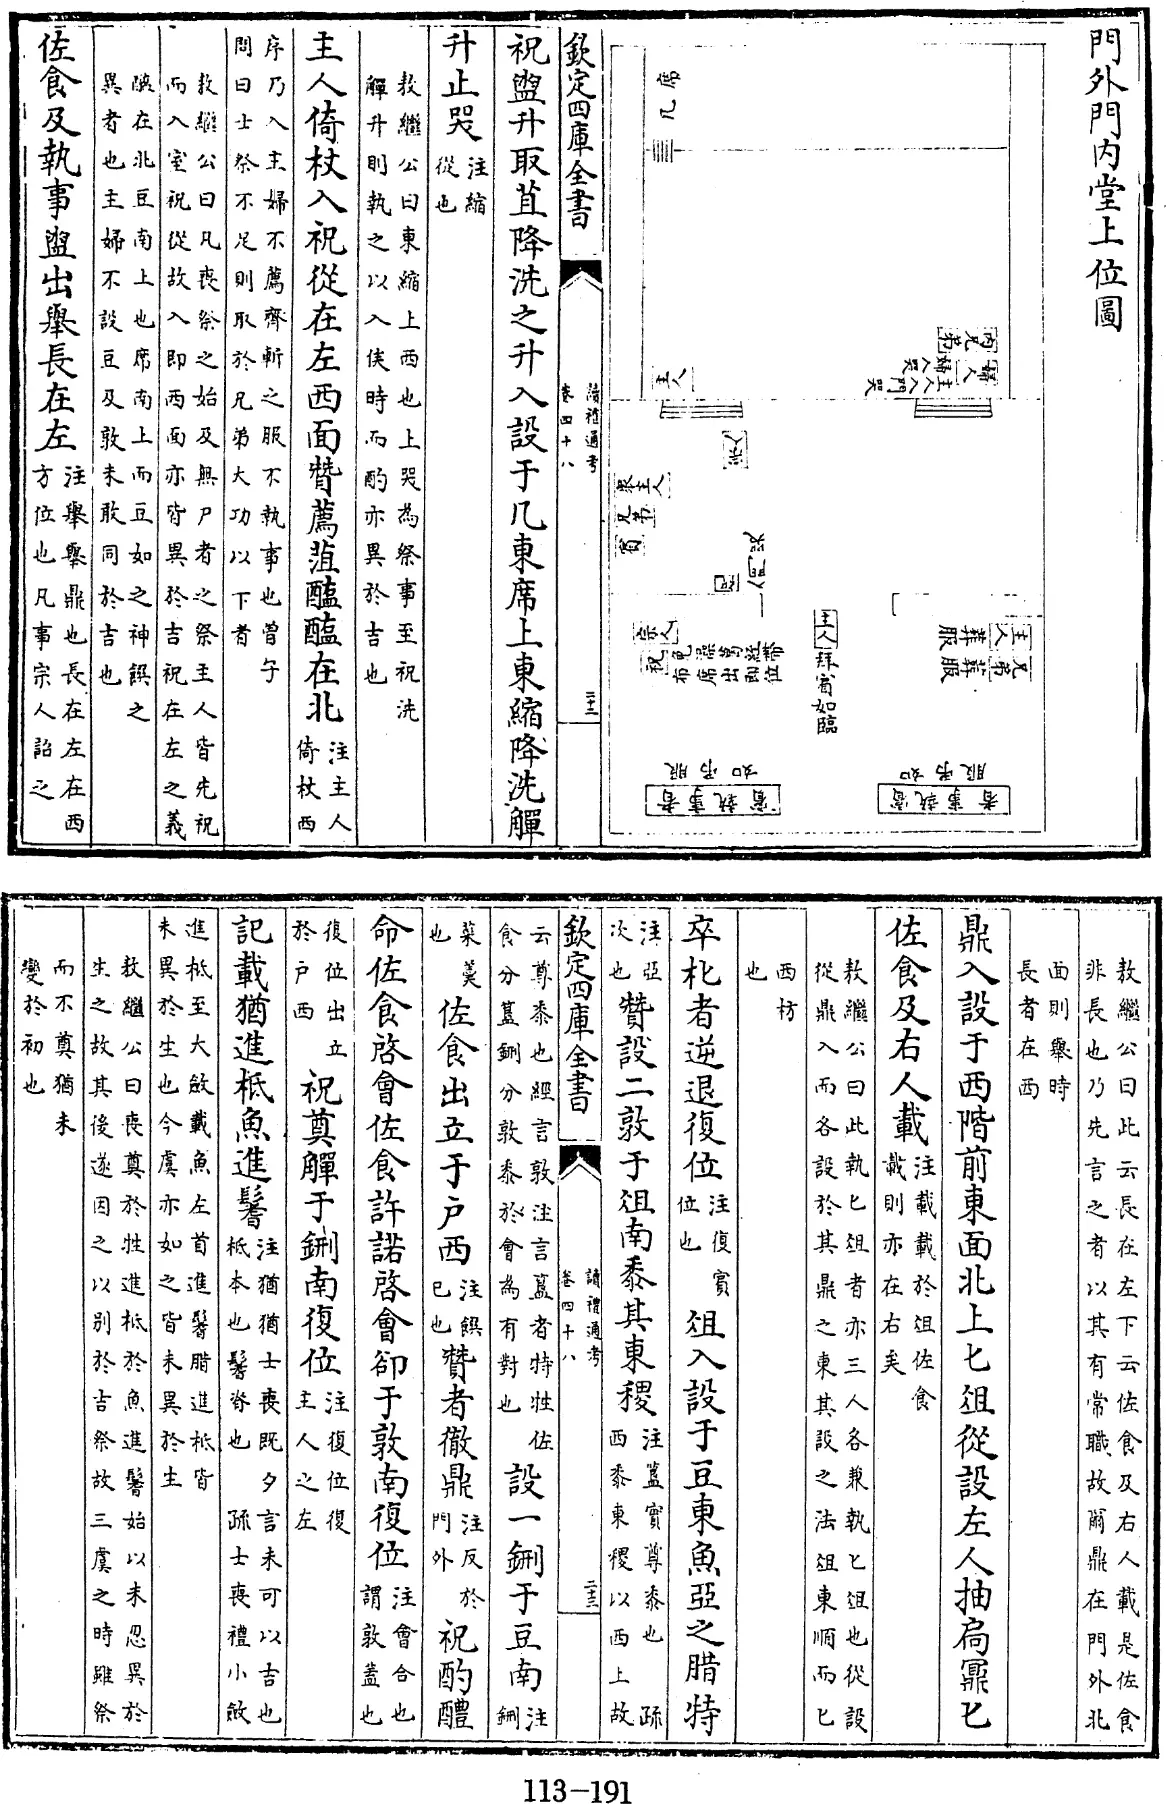 門外門内堂上位圖
席
几
内兄弟
婦人
主婦入哭
主人入門哭
主人
宗人
衆主人
兄弟
賔
祝
祝入門哭
主人
葬服
兄弟
葬服
主人拜賔如臨
宗人
祝
賔執事者
如弔服
賔執事者
如弔服
欽定四庫全書
讀禮通考
卷四十八
二十二
祝盥升取苴降洗之升入設于几東席上東縮降洗觶
升止哭注縮
從也
敖繼公曰東縮上西也上哭為祭事至祝洗
觶升則執之以入俟時而酌亦異於吉也
主人倚杖入祝從在左西面贊薦菹醢醢在北注主人
倚杖西
序乃入主婦不薦齊斬之服不執事也曽子
問曰士祭不足則取於兄弟大功以下者
敖繼公曰凡喪祭之始及無尸者之祭主人皆先祝
而入室祝從故入即西面亦皆異於吉祝在左之義
醢在北豆南上也席南上而豆如之神饌之
異者也主婦不設豆及敦未敢同於吉也
佐食及執事盥出舉長在左注舉舉鼎也長在左在西
方位也凡事宗人詔之
敖繼公曰此云長在左下云佐食及右人載是佐食
非長也乃先言之者以其有常職故爾鼎在門外北
面則舉時
長者在西
鼎入設于西階前東面北上匕俎從設左人抽扃鼏匕
佐食及右人載注載載於俎佐食
載則亦在右矣
敖繼公曰此執匕俎者亦三人各兼執匕俎也從設
從鼎入而各設於其鼎之東其設之法俎東順而匕
西枋
也
卒朼者逆退復位注復賔
位也俎入設于豆東魚亞之腊特
注亞
次也贊設二敦于俎南黍其東稷注簋實尊黍也疏
西黍東稷以西上故
欽定四庫全書
讀禮通考
卷四十八
二十三
云尊黍也經言敦注言簋者特牲佐
食分簋鉶分敦黍於㑹為有對也設一鉶于豆南注
鉶
菜羹
也佐食出立于户西注饌
已也贊者徹鼎注反於
門外祝酌醴
命佐食啓㑹佐食許諾啓㑹卻于敦南復位注㑹合也
謂敦蓋也
復位出立
於户西祝奠觶于鉶南復位注復位復
主人之左
記載猶進柢魚進鬐注猶猶士喪既夕言未可以吉也
柢本也鬐脊也疏士喪禮小斂
進柢至大斂載魚左首進鬐腊進柢皆
未異於生也今虞亦如之皆未異於生
敖繼公曰喪奠於牲進柢於魚進鬐始以未忍異於
生之故其後遂因之以别於吉祭故三虞之時雖祭
而不奠猶未
變於初也
113-191